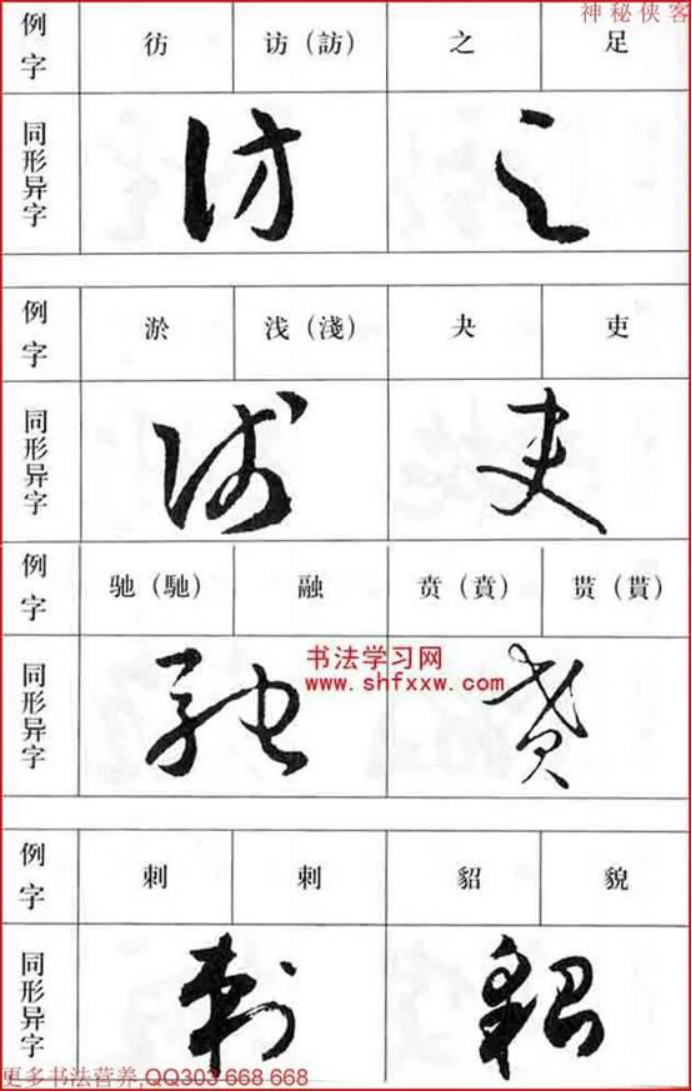 神秘侠客
例字 彷 访（訪） 之 足
同形异字
例字 淤 浅（淺） 夬 吏
同形异字
例字 驰（馳） 融 贲（賁） 贳（貰）
同形异字
书法学习网
www.shfxxw.com
例字 刺 刺 貂 貌
同形异字
更多书法营养,QQ303 668 668